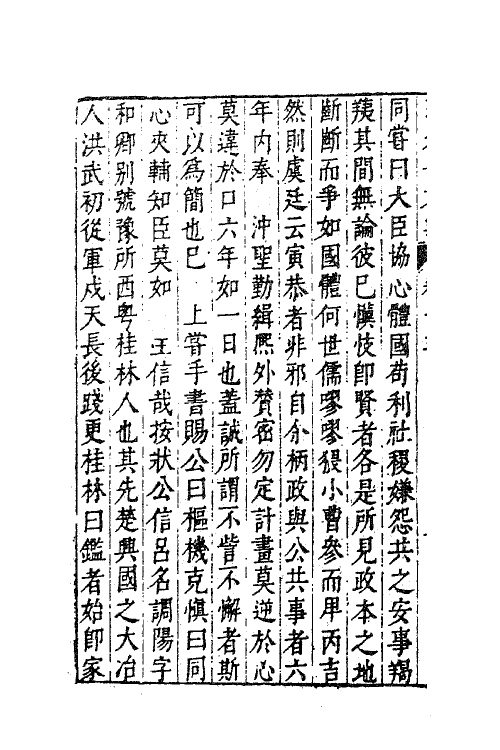 同嘗曰大臣協心體國苟利社稷嫌怨共之安事羯
羠其間無論彼已愼忮卽賢者各是所見政本之地
斷斷而爭如國體何世儒嘐嘐猥小曹參而卑丙吉
然則虞廷云寅恭者非邪自余柄政與公共事者六
年内奉 沖聖勤緝熙外贊密勿定計畫莫逆於心
莫違於口六年如一日也蓋誠所謂不訾不懈者斯
可以爲簡也已 上嘗手書賜公曰樞機克愼曰同
心夾輔知臣莫如 主信哉按狀公信呂名調陽字
和卿别號豫所西粤桂林人也其先楚興國之大冶
人洪武初從軍戍天長後踐更桂林曰鑑者始卽家